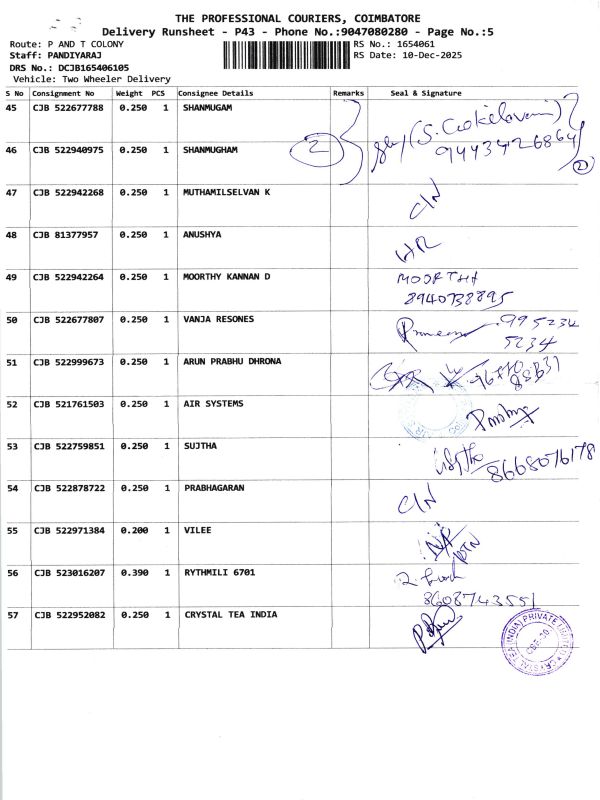 THE PROFESSIONAL COURIERS, COIMBATORE
Delivery Runsheet - P43 - Phone No.:9047080280 - Page No.:5
Route: P AND T COLONY RS No.: 1654061
Staff: PANDIYARAJ RS Date: 10-Dec-2025
DRS No.: DCJB165406105
Vehicle: Two Wheeler Delivery
S No Consignment No Weight PCS Consignee Details Remarks Seal & Signature
45 CJB 522677788 0.250 1 SHANMUGAM
46 CJB 522940975 0.250 1 SHANMUGHAM 2 9443426864 2
47 CJB 522942268 0.250 1 MUTHAMILSELVAN K C/N
48 CJB 81377957 0.250 1 ANUSHYA
49 CJB 522942264 0.250 1 MOORTHY KANNAN D MOORTHY
8940738895
50 CJB 522677807 0.250 1 VANJA RESONES 995234
5234
51 CJB 522999673 0.250 1 ARUN PRABHU DHRONA
52 CJB 521761503 0.250 1 AIR SYSTEMS
53 CJB 522759851 0.250 1 SUJTHA 8668076178
54 CJB 522878722 0.250 1 PRABHAGARAN C/N
55 CJB 522971384 0.200 1 VILEE
56 CJB 523016207 0.390 1 RYTHMILI 6701
8608743551
57 CJB 522952082 0.250 1 CRYSTAL TEA INDIA
CRYSTAL TEA (INDIA) PRIVATE LIMITED